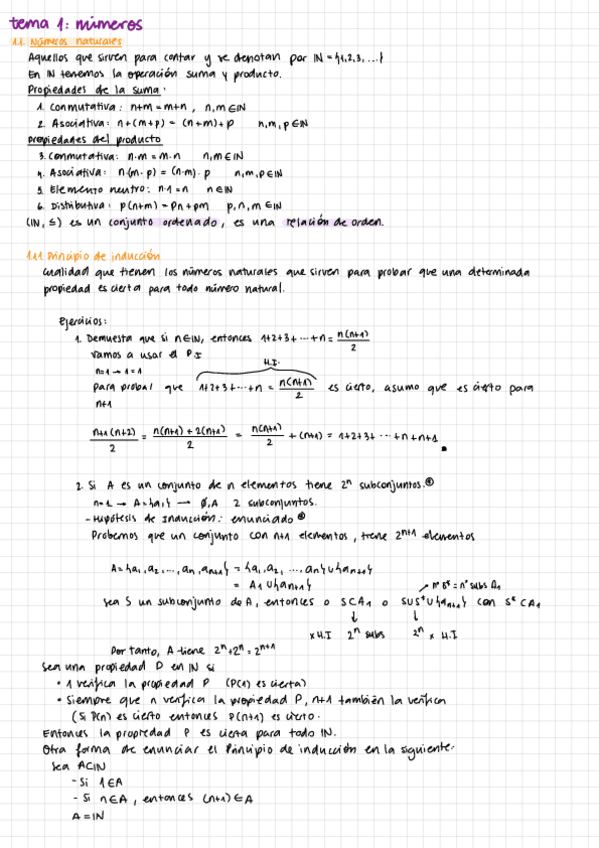 tema 1: números
1.1. Números naturales
Aquellos que sirven para contar y se denotan por IN = {1,2,3, ...}
En IN tenemos la operación suma y producto.
Propiedades de la suma:
1. Conmutativa: n+m = m+n , n,m ∈ IN
2. Asociativa: n+(m+p) = (n+m)+p n,m,p ∈ IN
Propiedades del producto
3. Conmutativa: n·m = m·n n,m ∈ IN
4. Asociativa: n·(m·p) = (n·m)·p n,m,p ∈ IN
5. Elemento neutro: n·1 = n n ∈ IN
6. Distributiva: p(n+m) = pn+pm p,n,m ∈ IN
(IN, ≤) es un conjunto ordenado, es una relación de orden.
1.1.1 Principio de inducción
Cualidad que tienen los números naturales que sirven para probar que una determinada
propiedad es cierta para todo número natural.
Ejercicios:
1. Demuesta que si n ∈ IN, entonces 1+2+3+ ... +n = n(n+1)/2
Vamos a usar el P.I
n=1 → 1=1
H.I.
Para probar que 1+2+3+ ... +n = n(n+1)/2 es cierto, asumo que es cierto para
n+1
n+1(n+2)/2 = n(n+1)+2(n+1)/2 = n(n+1)/2 + (n+1) = 1+2+3+ ... +n+n+1
2. Si A es un conjunto de n elementos tiene 2ⁿ subconjuntos.
n=1 → A={a₁} → Ø,A 2 subconjuntos.
- Hipótesis de Inducción: enunciado
Probemos que un conjunto con n+1 elementos, tiene 2ⁿ⁺¹ elementos
A={a₁,a₂,...,aₙ,aₙ₊₁} = {a₁,a₂, ...,aₙ} ∪ {aₙ₊₁}
= A₁ ∪ {aₙ₊₁}
Sea S un subconjunto de A, entonces o S⊂A₁ o S=S*∪{aₙ₊₁} con S*⊂A₁
x H.I 2ⁿ subs 2ⁿ x H.I
Por tanto, A tiene 2ⁿ+2ⁿ = 2ⁿ⁺¹
Sea una propiedad P en IN si
• 1 verifica la propiedad P (P(1) es cierta)
• Siempre que n verifica la propiedad P, n+1 también la verifica
(Si P(n) es cierto entonces P(n+1) es cierto.
Entonces la propiedad P es cierta para todo IN.
Otra forma de enunciar el Principio de inducción en la siguiente:
Sea A⊂IN
- Si 1∈A
- Si n∈A , entonces (n+1)∈A
A=IN